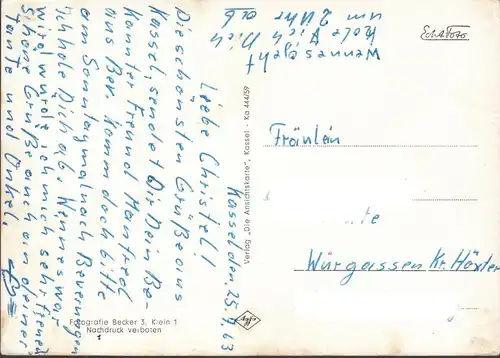 Kassel den 25.7.63
Liebe Christel!
Die schönsten Grüße aus
Kassel, sendet Dir Dein Be-
kannter Freund Manfred
aus Bev. Komm doch bitte
am Sonntag mal nach Beverungen
ich hole Dich ab. Wenn es was
wird würde ich mich sehr freuen
Schöne Grüße auch an deiner
Tante und Onkel.
Wenn es geht
hole ich Dich
um 2 Uhr ab
Echt Foto
Fräulein
te
Würgassen Kr. Höxter
Verlag „Die Ansichtskarte", Kassel - Ka 444/59
Agfa
Fotografie Becker 3, Klein 1
Nachdruck verboten